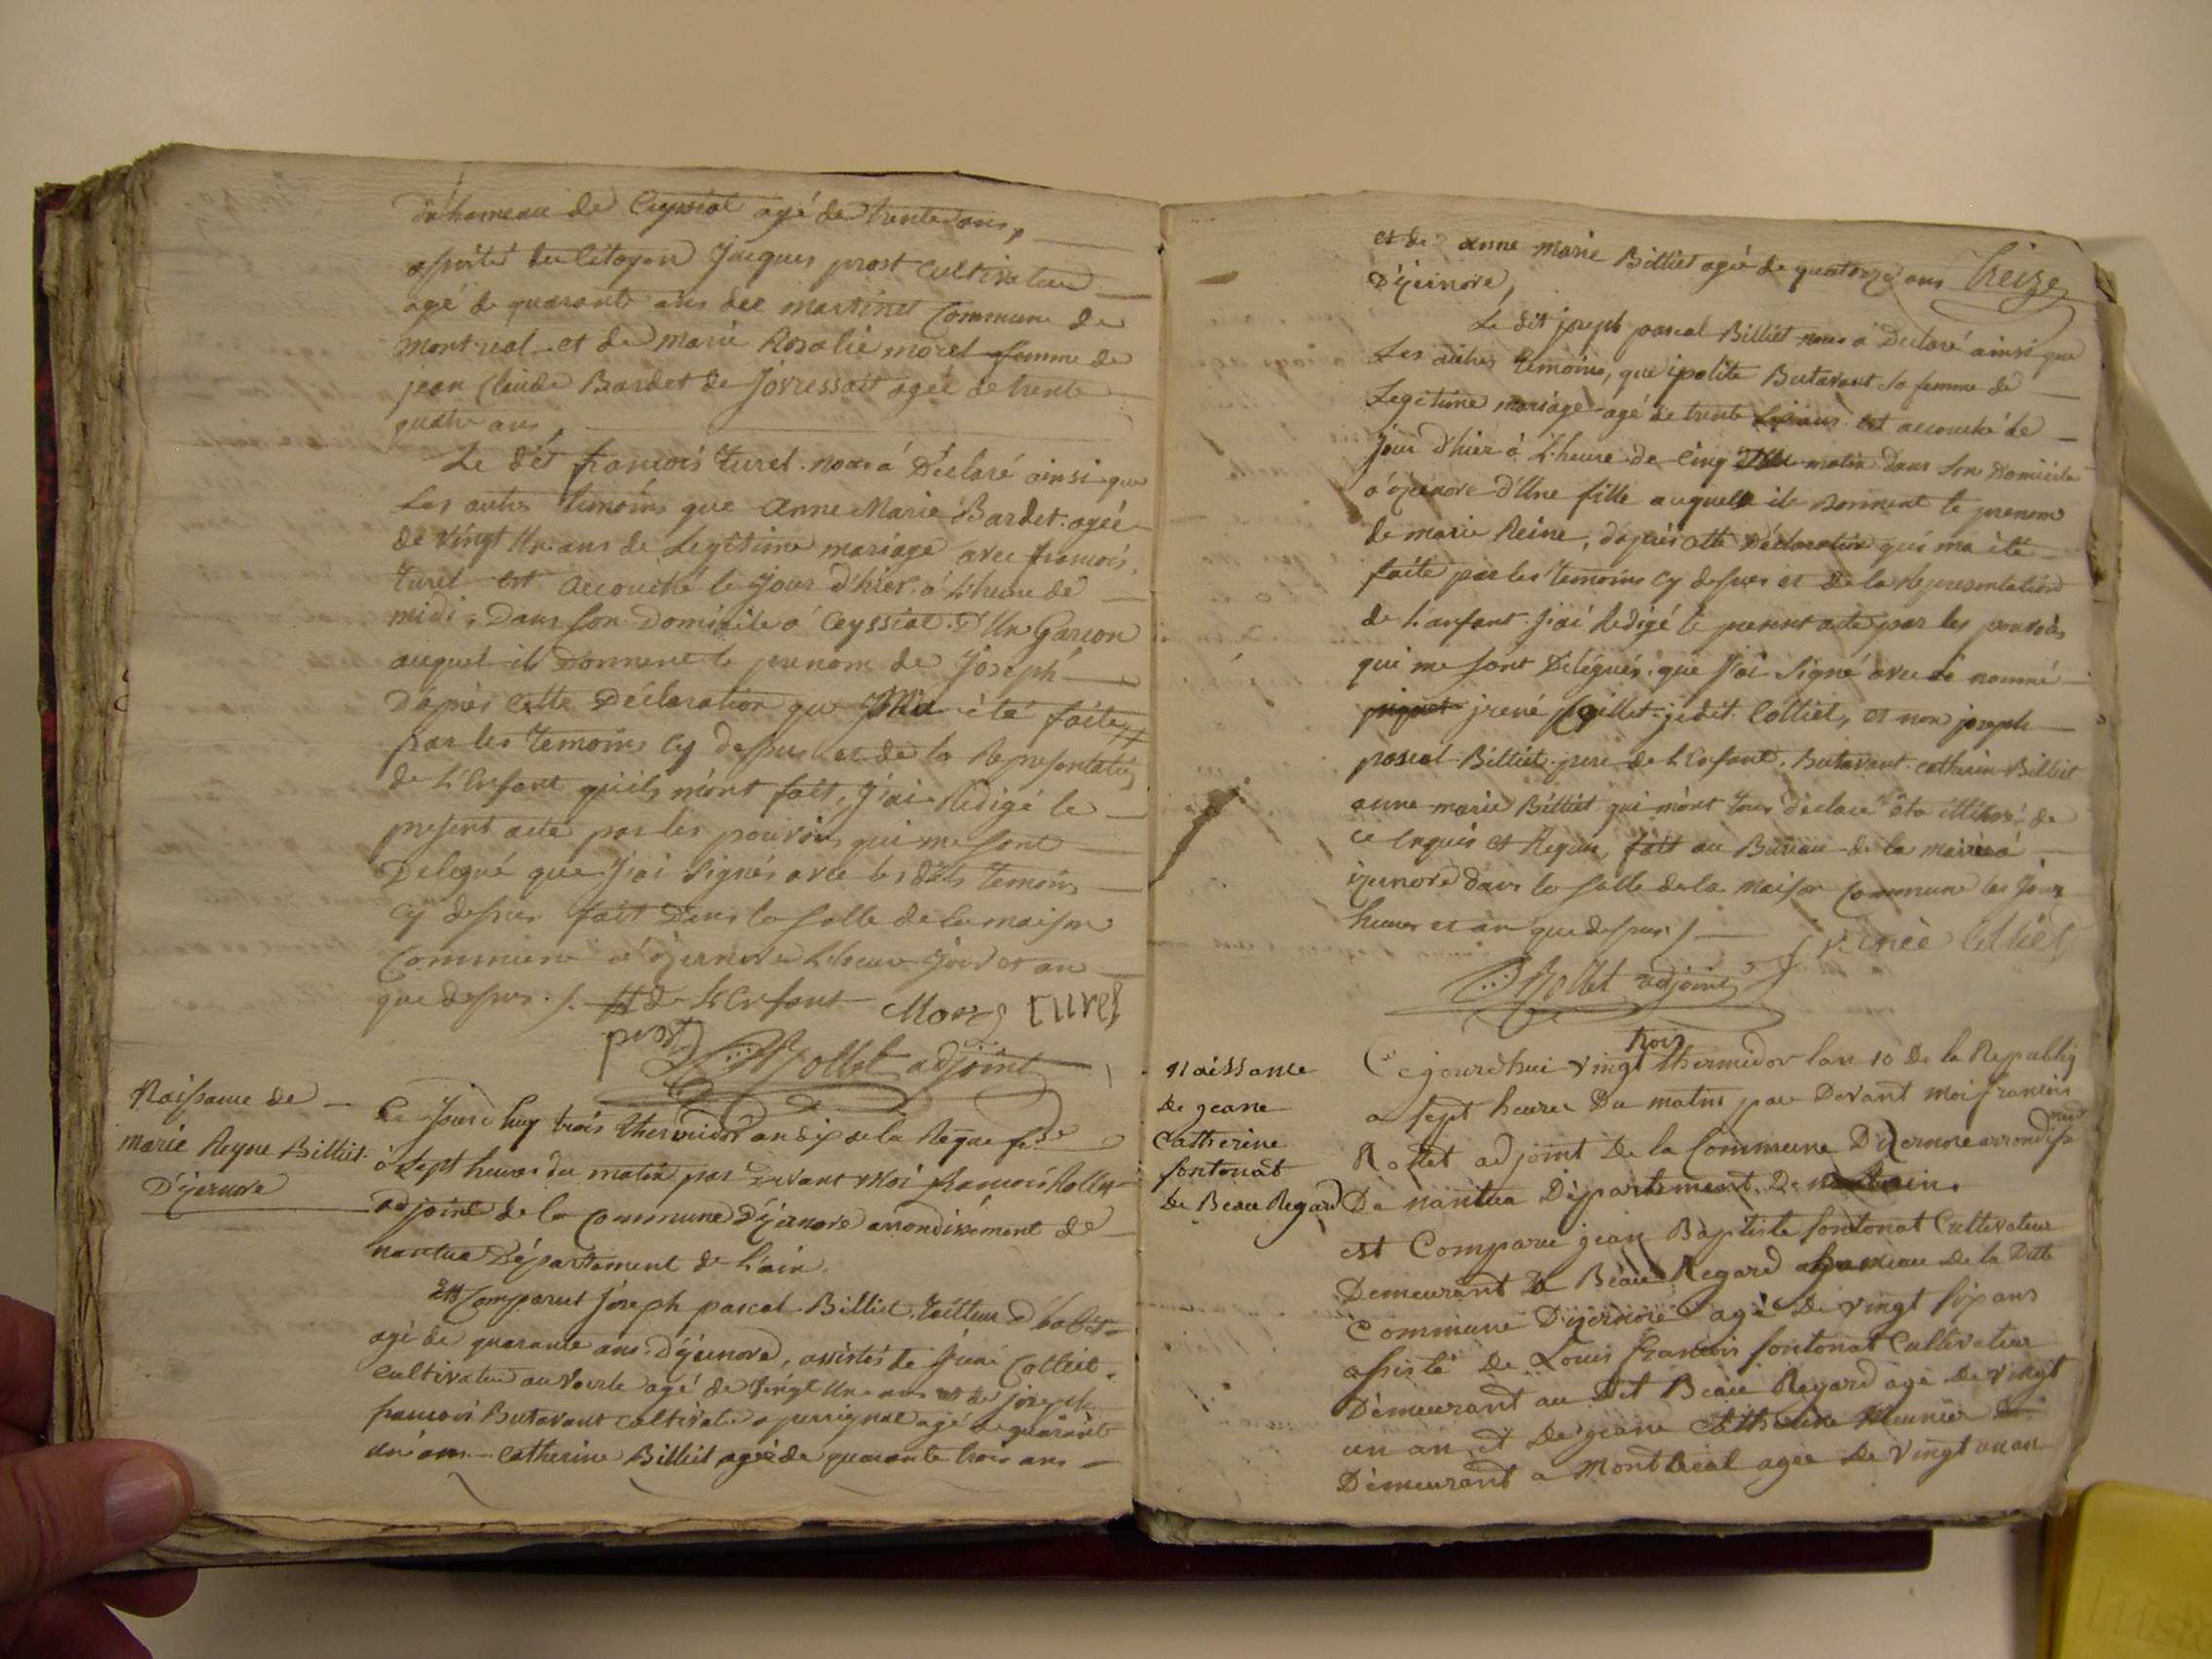 du hameau de Ceyssiat agé de trente ans,
assisté du Citoyen Jacques prost Cultivateur
agé de quarante ans des martinet Commune de
montreal et de marie Rosalie morel femme de
jean Claude Bardet de Jovressait agée de trente
quatre ans,
Le dit francois turel nous à Déclaré ainsi que
Les autres temoins que anne Marie Bardet agéé
de vingt Un ans de Legitime mariage avec francois
turel est accouché le Jour d'hier à L'heure de
midi, Dans Son Domicile à Ceyssiat D'Un Garson
auquel il Donnent le prenom de Joseph
D'après Cette Déclaration que été faite #
par les temoins Cy dessus et de la Representation
de L'Enfant qu'ils m'ont fait, J'ai Rédigé le
present acte par les pouvoirs qui me sont
Delegué que J'ai Signés avec les dits temoins
Cy dessus fait Dans la Salle de la maison
Commune à ijernore L'heure Jour et an
que dessus ./. # de L'Enfant Morel turel
prost Rollet adjoint
Naissance de
marie Reyne Billiet
D'ijernore
Ce Jourd'huy trois thermidor an dix de la Repue fse
à Sept heures du matin par devant Moi francois Rollet
adjoint de la Commune D'ijernore arrondissement de
nantua Département de L'ain.
Est Comparut Joseph pascal Billiet, tailleur d'habit
agé de quarante ans d'ijernore, assistés de Jréné Colliet
cultivateur au voerle agé de vingt Un ans et de joseph
francois Butavant cultivateur a perrignat agé de quarante
un ans catherine Billiet agéé de quarante trois ans
et de anne marie Billiet agéé de quatorze ans treize
D'ijernore,
Le dit joseph pascal Billiet nous à Déclaré ainsi que
Les autres temoins, que ipolite Butavant sa femme de
Legitime mariage agé de trente Six ans est accouché le
Jour d'hier à L'heure de Cinq du matin dans Son Domicile
à ijernore D'Une fille auquelle ils Donnent le prenom
de marie Reine, d'après cette Déclaration qui ma été
faite par les temoins Cy dessus et de la Representation
de L'anfant J'ai Redigé le present acte par les pouvoirs
qui me sont Délégués, que J'ai Signé avec lé nommé
jrené Colliet, et non joseph
pascal Billiet pere de L'Enfant, Butavant catherine Billiet
anne marie Billiet qui m'ont tous déclaré etre illitéré de
ce Enquis et Requis, fait au Bureau de la mairie à
ijernore dans la Salle de la maison Commune les Jour
heures et an que dessus ./. jrenée Colliet
Rollet adjoint
Naissance
De jeane
Catherine
fontonat
De Beau Regard
trois
Ce jourdhui vingt thermidor lan 10 De la Republiq
a sept heures Du matin par Devant moi francois
Rollet adjoint De la Commune D'ijernore arrondisse
ment
De nantua Département De Lain.
est Comparu jean Baptiste fontonat Cultivateur
Demeurant a Beau Regard hameau De la Ditte
Commune D'ijernore agé De vingt Six ans
assisté De Louis francois fontonat Cultivateur
Demeurant au Dit Beau Regard agé De vingt
un an et De jeane Catherine Meunier
Demeurant a Montreal agee De vingt un an